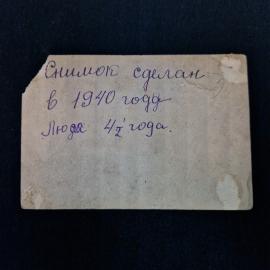 Снимок сделан
в 1940 году
Люся 4½ года.